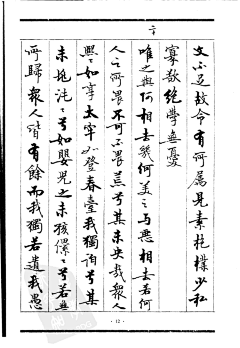 文不足故令有所屬見素抱樸少私
寡欲絕學無憂
二十
唯之與阿相去幾何美之與惡相去若何
人之所畏不可不畏荒兮其未央哉眾人
熙熙如享太牢如登春臺我獨泊兮其
未兆沌沌兮如嬰兒之未孩儽儽兮若無
所歸眾人皆有餘而我獨若遺我愚
12